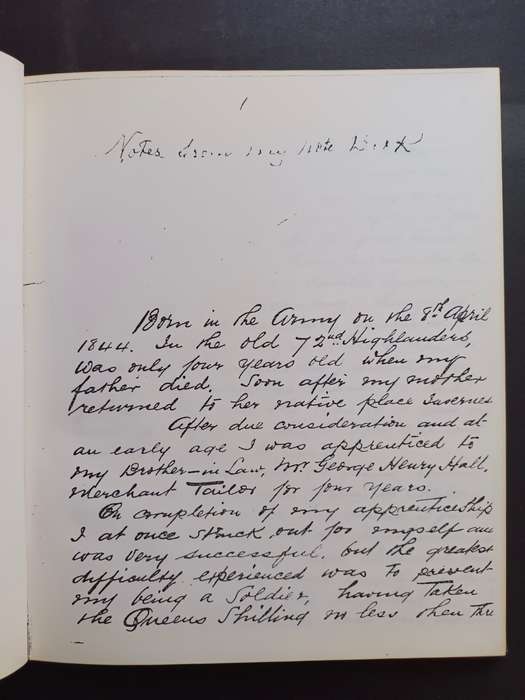 1
Notes from my note Book
Born in the Army on the 8th April
1844. In the old 72nd Highlanders,
was only four years old when my
father died. Soon after my mother
returned to her native place Inverness
After due consideration and at
an early age I was apprenticed to
my Brother-in Law, Mr George Henry Hall,
Merchant Tailor for four years.
On completion of my apprenticeship
I at once struck out for myself and
was very successful, but the greatest
difficulty experienced was to prevent
my being a Soldier, having Taken
the Queens Shilling in less then